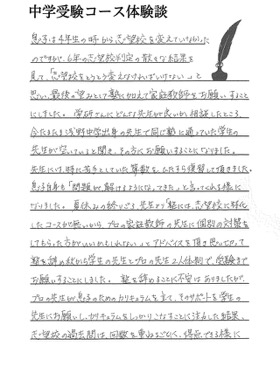 中学受験コース体験談
息子は4年生の時から志望校を変えていなかった
のですが、6年の志望校判定の散々な結果を
見て、「志望校をもう変えなければいけない。」と
思い、最後の望みとして塾に加えて家庭教師をお願いすること
にしました。学研さんにどんな先生が良いか相談したところ、
今たまたま浅野中学出身の先生で同じ塾に通っていた学生の
先生が空いていると聞き、その方にお願いすることになりました。
先生には、特に苦手としていた算数を、ひたすら復習して頂きました。
息子自身も「問題が解けるようになってきた」と言ってくれる様に
なりました。夏休みの終りごろ、先生より「塾には、志望校に特化
したコースが無いから、プロの家庭教師の先生に個別の対策を
してもらった方がいいかもしれない」とアドバイスを頂き、思い切って
塾を辞め秋から学生の先生とプロの先生2人体制で、受験まで
お願いすることにしました。塾を辞めることに不安はありましたが、
プロの先生が息子のためのカリキュラムを立て、そのサポートを学生の
先生にお願いし、カリキュラムをしっかりこなすことに注力した結果、
志望校の過去問は、回数を重ねるごとに、得点できる様に